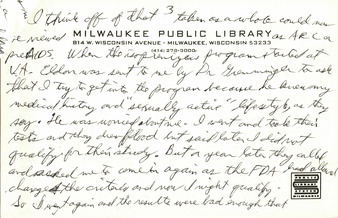 I think off of that 3 taken as a whole could now
be viewed as ARC or
MILWAUKEE PUBLIC LIBRARY
814 W. WISCONSIN AVENUE - MILWAUKEE, WISCONSIN 53233
(414) 278-3000
preAIDS. When the isoprenosine program started at
Eldon was sent to me by Dr. to ask
that I try to get into the program because he knew my
medical history and sexually active "lifestyle", as they
say. He was worried about me. I went and took their
tests and they drew blood but said later I did not
qualify for their study. But a year later they called
and asked me to come in again as the FDA had allowed
change the criteria and now I might qualify.
So I went again and the results were bad enough that